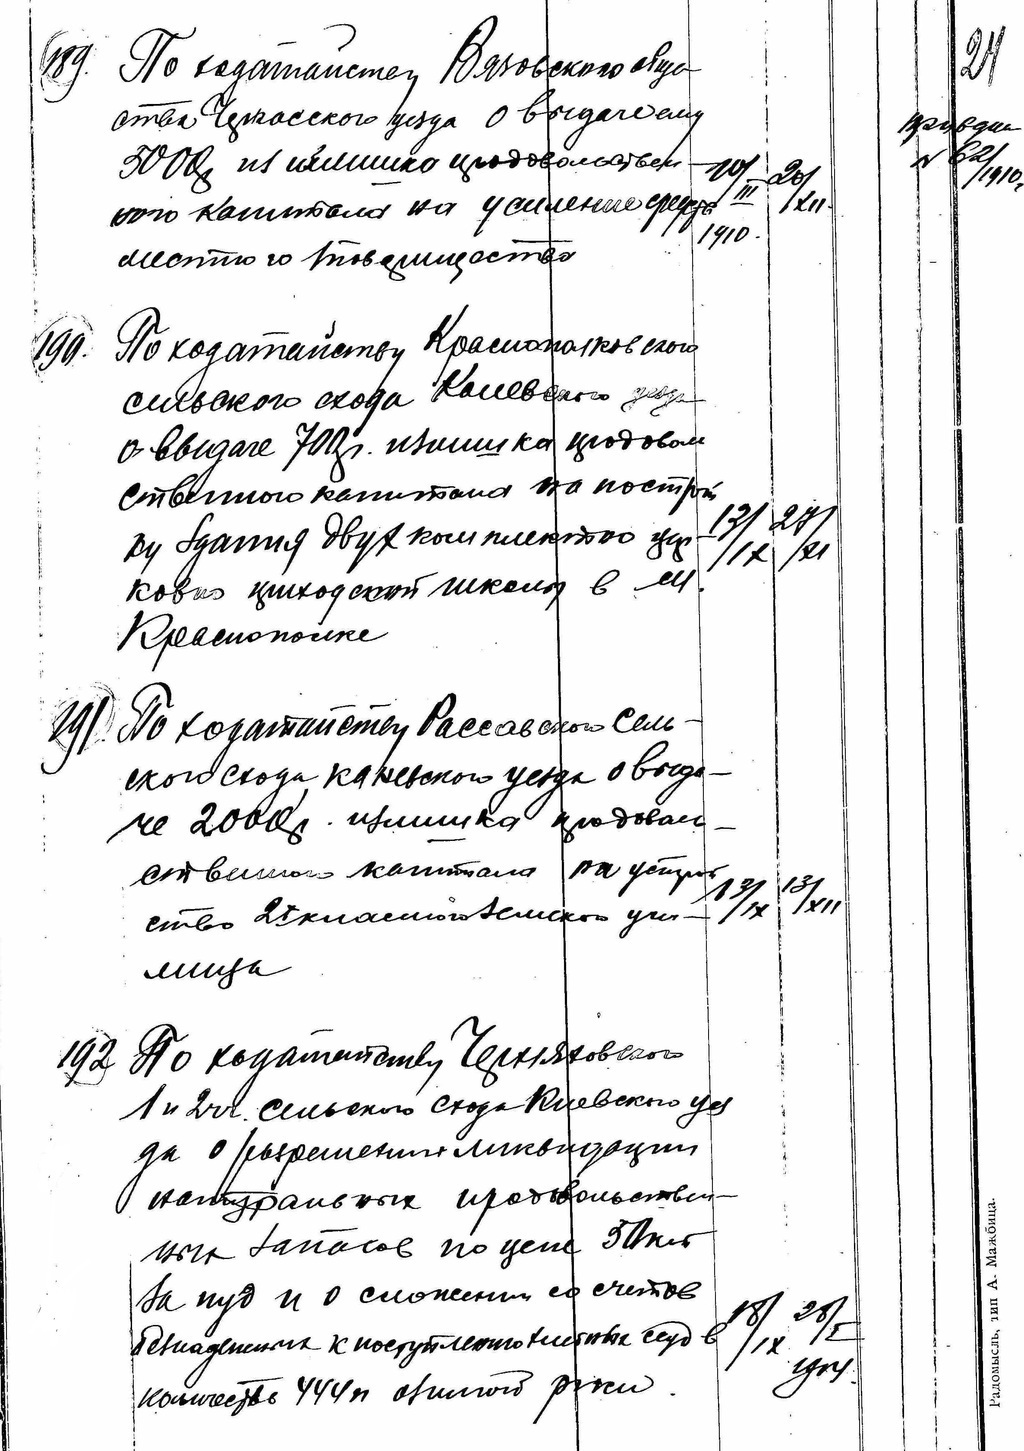 24
189. По ходатайству Вязовского обще
ства Черкасского уезда о выдаче ему
5000 р из излишка продовольствен
ного капитала на усиление средств
местного товарищества
10/III 1910. 20/XII.
N 62/1910 г.
190. По ходатайству Краснополковского
сельского схода Каневского уезда
о выдаче 700 р. излишка продоволь
ственного капитала на построй
ку здания двухкомплектно цер
ковно приходской школы в м.
Краснополке
13/IX 27/XI
191. По ходатайству Рассавского сель-
ского схода Каневского уезда о выда-
че 2000 р. излишка продоволь-
ственного капитала на устрой
ство 2х классного земского учи-
лища
13/IX 13/XII
192 По ходатайству Черняховского
1 и 2 ч. сельского схода Киевского уез
да о разрешении ликвидации
натуральных продовольствен-
ных запасов по цене 50 коп
за пуд и о сложении со счетов
безнадежных к поступлению хлебных ссуд в
количестве 444 п озимой ржи.
18/IX 28/I
Радомысль, тип А. Мажбица.